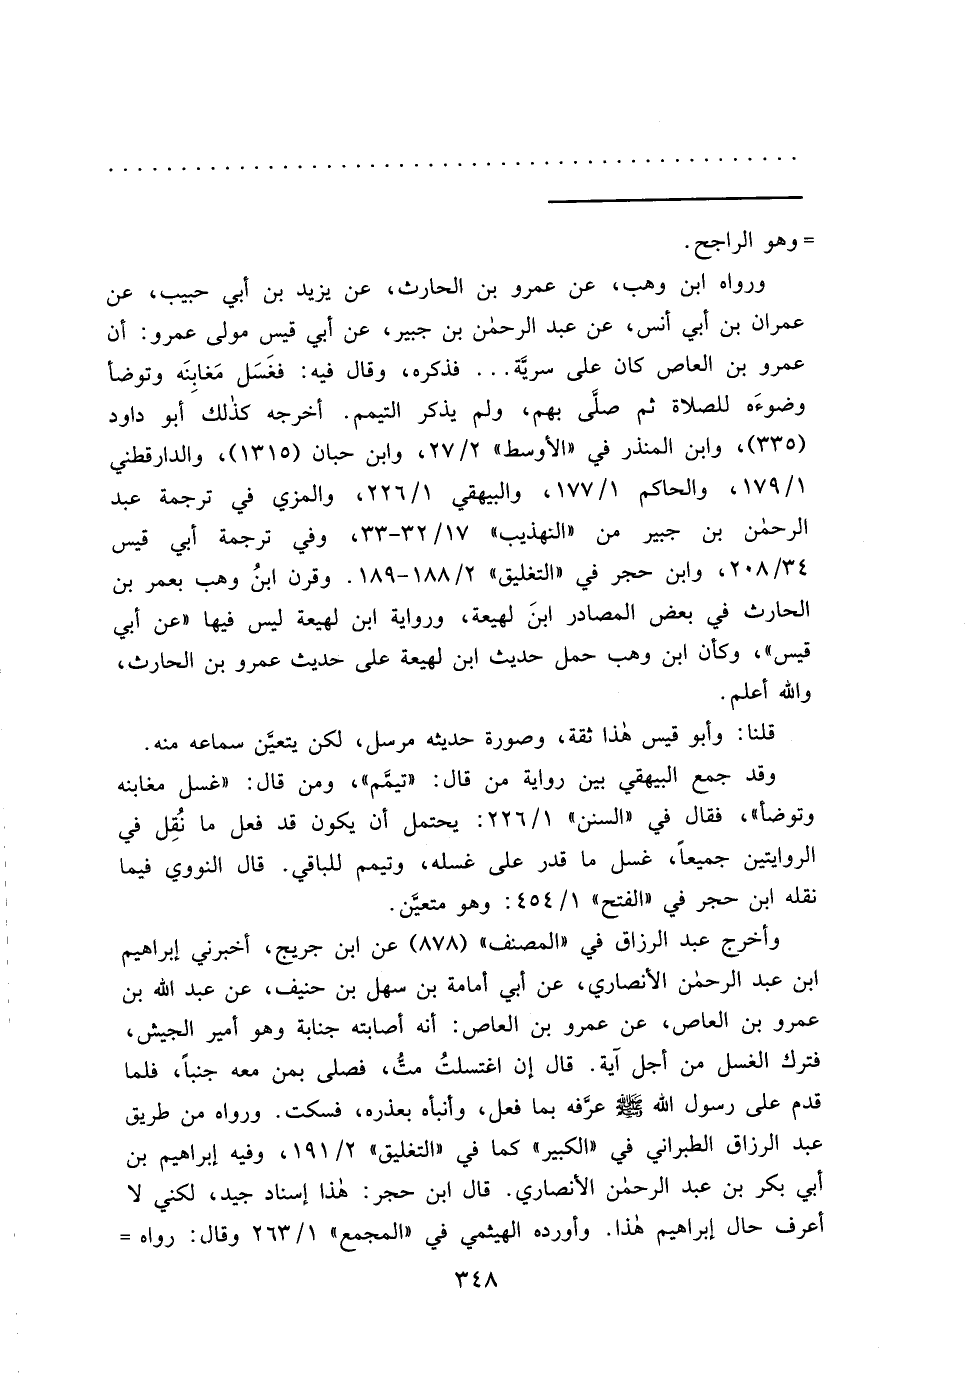 = وهو الراجح.
ورواه ابن وهب، عن عمرو بن الحارث، عن يزيد بن أبي حبيب، عن
عمران بن أبي أنس، عن عبد الرحمٰن بن جبير، عن أبي قيس مولى عمرو: أن
عمرو بن العاص كان على سريَّة... فذكره، وقال فيه: فغَسَل مَغابِنَه وتوضأ
وضوءَه للصلاة ثم صلَّى بهم، ولم يذكر التيمم. أخرجه كذٰلك أبو داود
(٣٣٥)، وابن المنذر في «الأوسط» ٢٧/٢، وابن حبان (١٣١٥)، والدارقطني
١٧٩/١، والحاكم ١٧٧/١، والبيهقي ٢٢٦/١، والمزي في ترجمة عبد
الرحمٰن بن جبير من «التهذيب» ٣٢/١٧-٣٣، وفي ترجمة أبي قيس
٢٠٨/٣٤، وابن حجر في «التغليق» ١٨٨/٢-١٨٩. وقرن ابنُ وهب بعمر بن
الحارث في بعض المصادر ابنَ لهيعة، ورواية ابن لهيعة ليس فيها «عن أبي
قيس»، وكأن ابن وهب حمل حديث ابن لهيعة على حديث عمرو بن الحارث،
والله أعلم.
قلنا: وأبو قيس هٰذا ثقة، وصورة حديثه مرسل، لكن يتعيَّن سماعه منه.
وقد جمع البيهقي بين رواية من قال: «تيمَّم»، ومن قال: «غسل مغابنه
وتوضأ»، فقال في «السنن» ٢٢٦/١: يحتمل أن يكون قد فعل ما نُقِل في
الروايتين جميعاً، غسل ما قدر على غسله، وتيمم للباقي. قال النووي فيما
نقله ابن حجر في «الفتح» ٤٥٤/١: وهو متعيَّن.
وأخرج عبد الرزاق في «المصنف» (٨٧٨) عن ابن جريج، أخبرني إبراهيم
ابن عبد الرحمٰن الأنصاري، عن أبي أمامة بن سهل بن حنيف، عن عبد الله بن
عمرو بن العاص، عن عمرو بن العاص: أنه أصابته جنابة وهو أمير الجيش،
فترك الغسل من أجل آية. قال إن اغتسلتُ متُّ، فصلى بمن معه جنباً، فلما
قدم على رسول الله ﷺ عرَّفه بما فعل، وأنبأه بعذره، فسكت. ورواه من طريق
عبد الرزاق الطبراني في «الكبير» كما في «التغليق» ١٩١/٢، وفيه إبراهيم بن
أبي بكر بن عبد الرحمٰن الأنصاري. قال ابن حجر: هٰذا إسناد جيد، لكني لا
أعرف حال إبراهيم هٰذا. وأورده الهيثمي في «المجمع» ٢٦٣/١ وقال: رواه =
٣٤٨